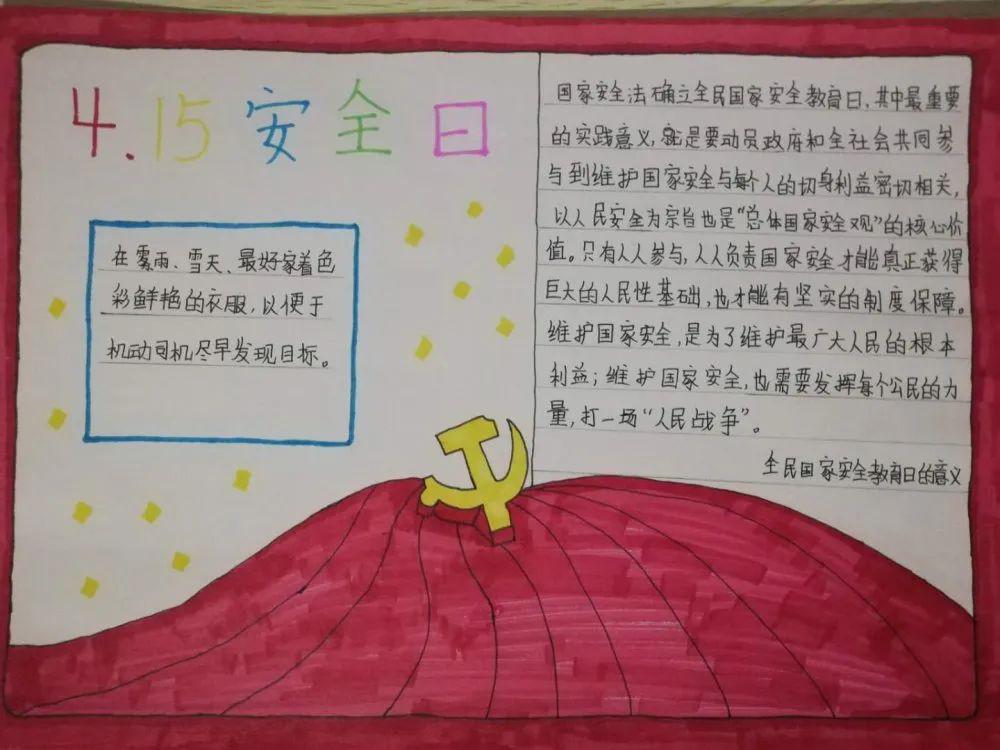 4.15安全日
在雾雨、雪天、最好家着色
彩鲜艳的衣服，以便于
机动司机尽早发现目标。
国家安全法确立全民国家安全教育日，其中最重要
的实践意义，就是要动员政府和全社会共同参
与到维护国家安全与每个人的切身利益密切相关，
以人民安全为宗旨也是“总体国家安全观”的核心价
值。只有人人参与，人人负责国家安全才能真正获得
巨大的人民性基础，也才能有坚实的制度保障。
维护国家安全，是为了维护最广大人民的根本
利益；维护国家安全，也需要发挥每个公民的力
量，打一场“人民战争”。
全民国家安全教育日的意义